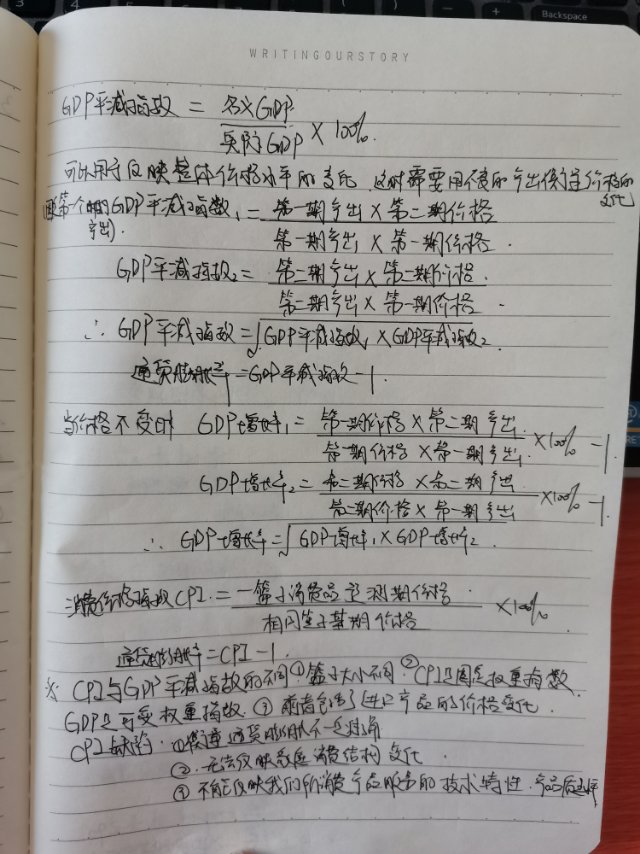 Backspace
WRITINGOURSTORY
GDP平减指数 = 名义GDP / 实际GDP × 100%.
可以用于反映整体价格水平的变化 这时需要用不变的产出衡量价格的变化
第一个时期的GDP平减指数₁ = 第一期产出 × 第二期价格 / 第一期产出 × 第一期价格.
产出).
GDP平减指数₂ = 第二期产出 × 第二期价格. / 第二期产出 × 第一期价格.
∴ GDP平减指数 = √GDP平减指数₁ × GDP平减指数₂
通货膨胀率 = GDP平减指数 - 1.
当价格不变时 GDP增长率₁ = 第一期价格 × 第二期产出. / 第一期价格 × 第一期产出. × 100% - 1
GDP增长率₂ = 第二期价格 × 第二期产出 / 第二期价格 × 第一期产出 × 100% - 1.
∴ GDP增长率 = √GDP增长率₁ × GDP增长率₂.
消费价格指数CPI. = 一篮子消费品 测期价格. / 相同篮子基期价格 × 100%
通货膨胀率 = CPI - 1.
※ CPI与GDP平减指数的不同 ①篮子大小不同. ②CPI是固定权重指数.
GDP是可变权重指数. ③前者包括了进口产品的价格变化.
CPI缺陷: ①衡量通货膨胀不一定准确
②. 无法反映 消费结构变化.
③不能反映我们所消费产品服务的技术特性. 产品质量